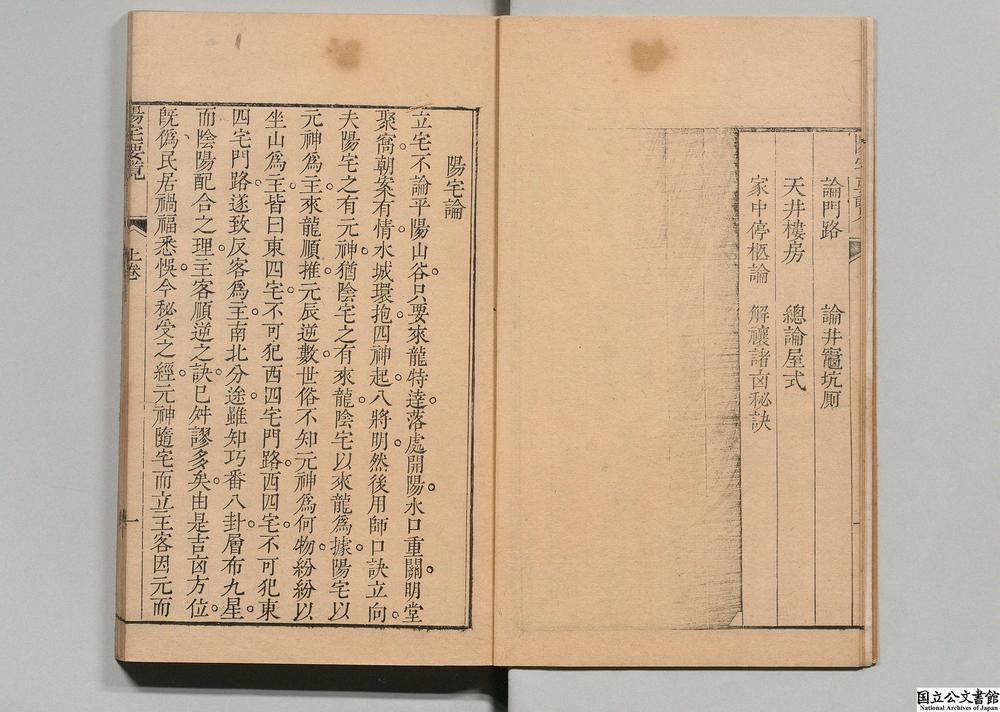 論門路　論井竈坑厠
天井樓房　總論屋式
家中停柩論　解禳諸凶秘訣
陽宅論
立宅不論平陽山谷。只要來龍特達。落處開陽。水口重關。明堂
聚窩。朝案有情。水城環抱。四神起。八將明。然後用師口訣立向。
夫陽宅之有元神。猶陰宅之有來龍。陰宅以來龍爲據。陽宅以
元神爲主。來龍順推。元辰逆數。世俗不知元神爲何物。紛紛以
坐山爲主。皆曰東四宅。不可犯西四宅門路。西四宅。不可犯東
四宅門路。遂致反客爲主。南北分途。雖知巧番八卦。層布九星。
而陰陽配合之理。主客順逆之訣。已舛謬多矣。由是吉凶方位。
既僞。民居禍福悉悞。今秘受之經。元神隨宅而立。主客因元而
陽宅要覽　上卷　一
国立公文書館
National Archives of Japan